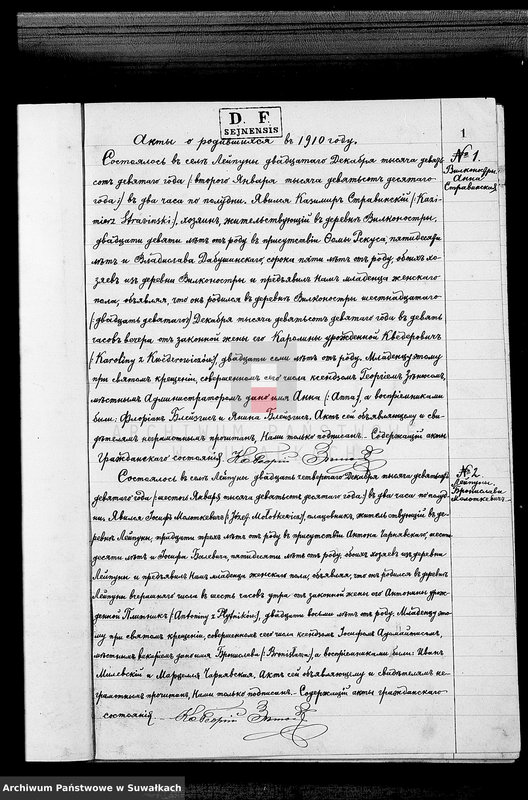 D. F.
SEJNENSIS
Акты о родившихся въ 1910 году.
1
№ 1.
Вилконостры
Анна
Стравинская
Состоялось въ селѣ Лейпуны двадцатаго Декабря тысяча девять
сотъ девятаго года (второго Января тысяча девятьсотъ десятаго
года) въ два часа по полудни. Явился Казимиръ Стравинскій (Kazi-
mierz Strawinski), хозяинъ, жительствующій въ деревнѣ Вилконостры,
двадцати девяти лѣтъ отъ роду въ присутствіи Ѳомы Рекуса, пятидесяти
лѣтъ и Владислава Дабушинскаго, сорока пяти лѣтъ отъ роду, обоихъ хо-
зяевъ изъ деревни Вилконостры и предъявилъ Намъ младенца женскаго
пола, объявляя, что онъ родился въ деревнѣ Вилконостры шестнадцатаго
(двадцать девятаго) Декабря тысяча девятьсотъ девятаго года въ девять
часовъ вечера отъ законной жены его Каролины урожденной Квѣдеровичъ
(Karoliny z Kwederowiczów), двадцати семи лѣтъ отъ роду. Младенцу этому
при святомъ крещеніи, совершенномъ сего числа ксендзомъ Георгіемъ
мѣстнымъ Администраторомъ дано имя Анна (Anna), а воспріемниками
были: Флоріанъ Блейзгисъ и Янина Блейзгисъ. Актъ сей объявляющему и сви-
дѣтелямъ неграмотнымъ прочитанъ, Нами только подписанъ. Содержащій акты
гражданскаго состоянія
№ 2.
Лейпуны.
Бронислава
Молоткевичъ
Состоялось въ селѣ Лейпуны двадцать четвертаго Декабря тысяча девятьсотъ
девятаго года (шестого Января тысяча девятьсотъ десятаго года) въ два часа по полуд-
ни. Явился Іосифъ Молоткевичъ (Józef Mołotkewicz), плацовникъ, жительствующій въ де-
ревнѣ Лейпуны, тридцати трехъ лѣтъ отъ роду въ присутствіи Антона Чарнявскаго, шести-
десяти лѣтъ и Іосифа Билевича, пятидесяти лѣтъ отъ роду, обоихъ хозяевъ изъ деревни
Лейпуны и предъявилъ Намъ младенца женскаго пола, объявляя, что онъ родился въ деревнѣ
Лейпуны вчерашняго числа въ шесть часовъ утра отъ законной жены его Антонины урож-
денной Плытникъ (Antoniny z Płytników), двадцати восьми лѣтъ отъ роду. Младенцу это-
му при святомъ крещеніи, совершенномъ сего числа ксендзомъ Іосифомъ
мѣстнымъ викаріемъ дано имя Бронислава (Bronisława), а воспріемниками были: Иванъ
Милевскій и Марцеля Чарнявская. Актъ сей объявляющему и свидѣтелямъ не-
грамотнымъ прочитанъ, Нами только подписанъ. Содержащій акты гражданскаго
состоянія
Archiwum Państwowe w Suwałkach